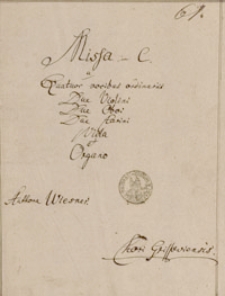 61.
Missa in C.
a
Quatuor vocibus ordinariis
Due Violini
Due Oboi
Due Clarini
Viola
et
Organo
Authore Wiesner
Chori